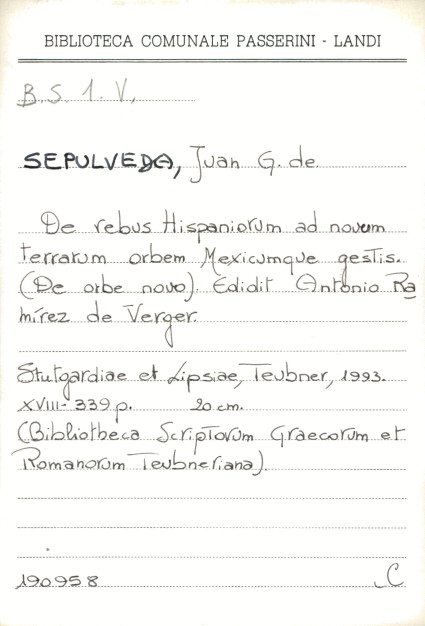 BIBLIOTECA COMUNALE PASSERINI - LANDI
B.S. 1. V,
SEPULVEDA, Juan G. de
De rebus Hispaniorum ad novum
terrarum orbem Mexicumque gestis.
(De orbe novo). Edidit Antonio Ra
mírez de Verger
Stutgardiae et Lipsiae, Teubner, 1993.
XVIII- 339 p. 20 cm.
(Bibliotheca Scriptorum Graecorum et
Romanorum Teubneriana).
190958 C